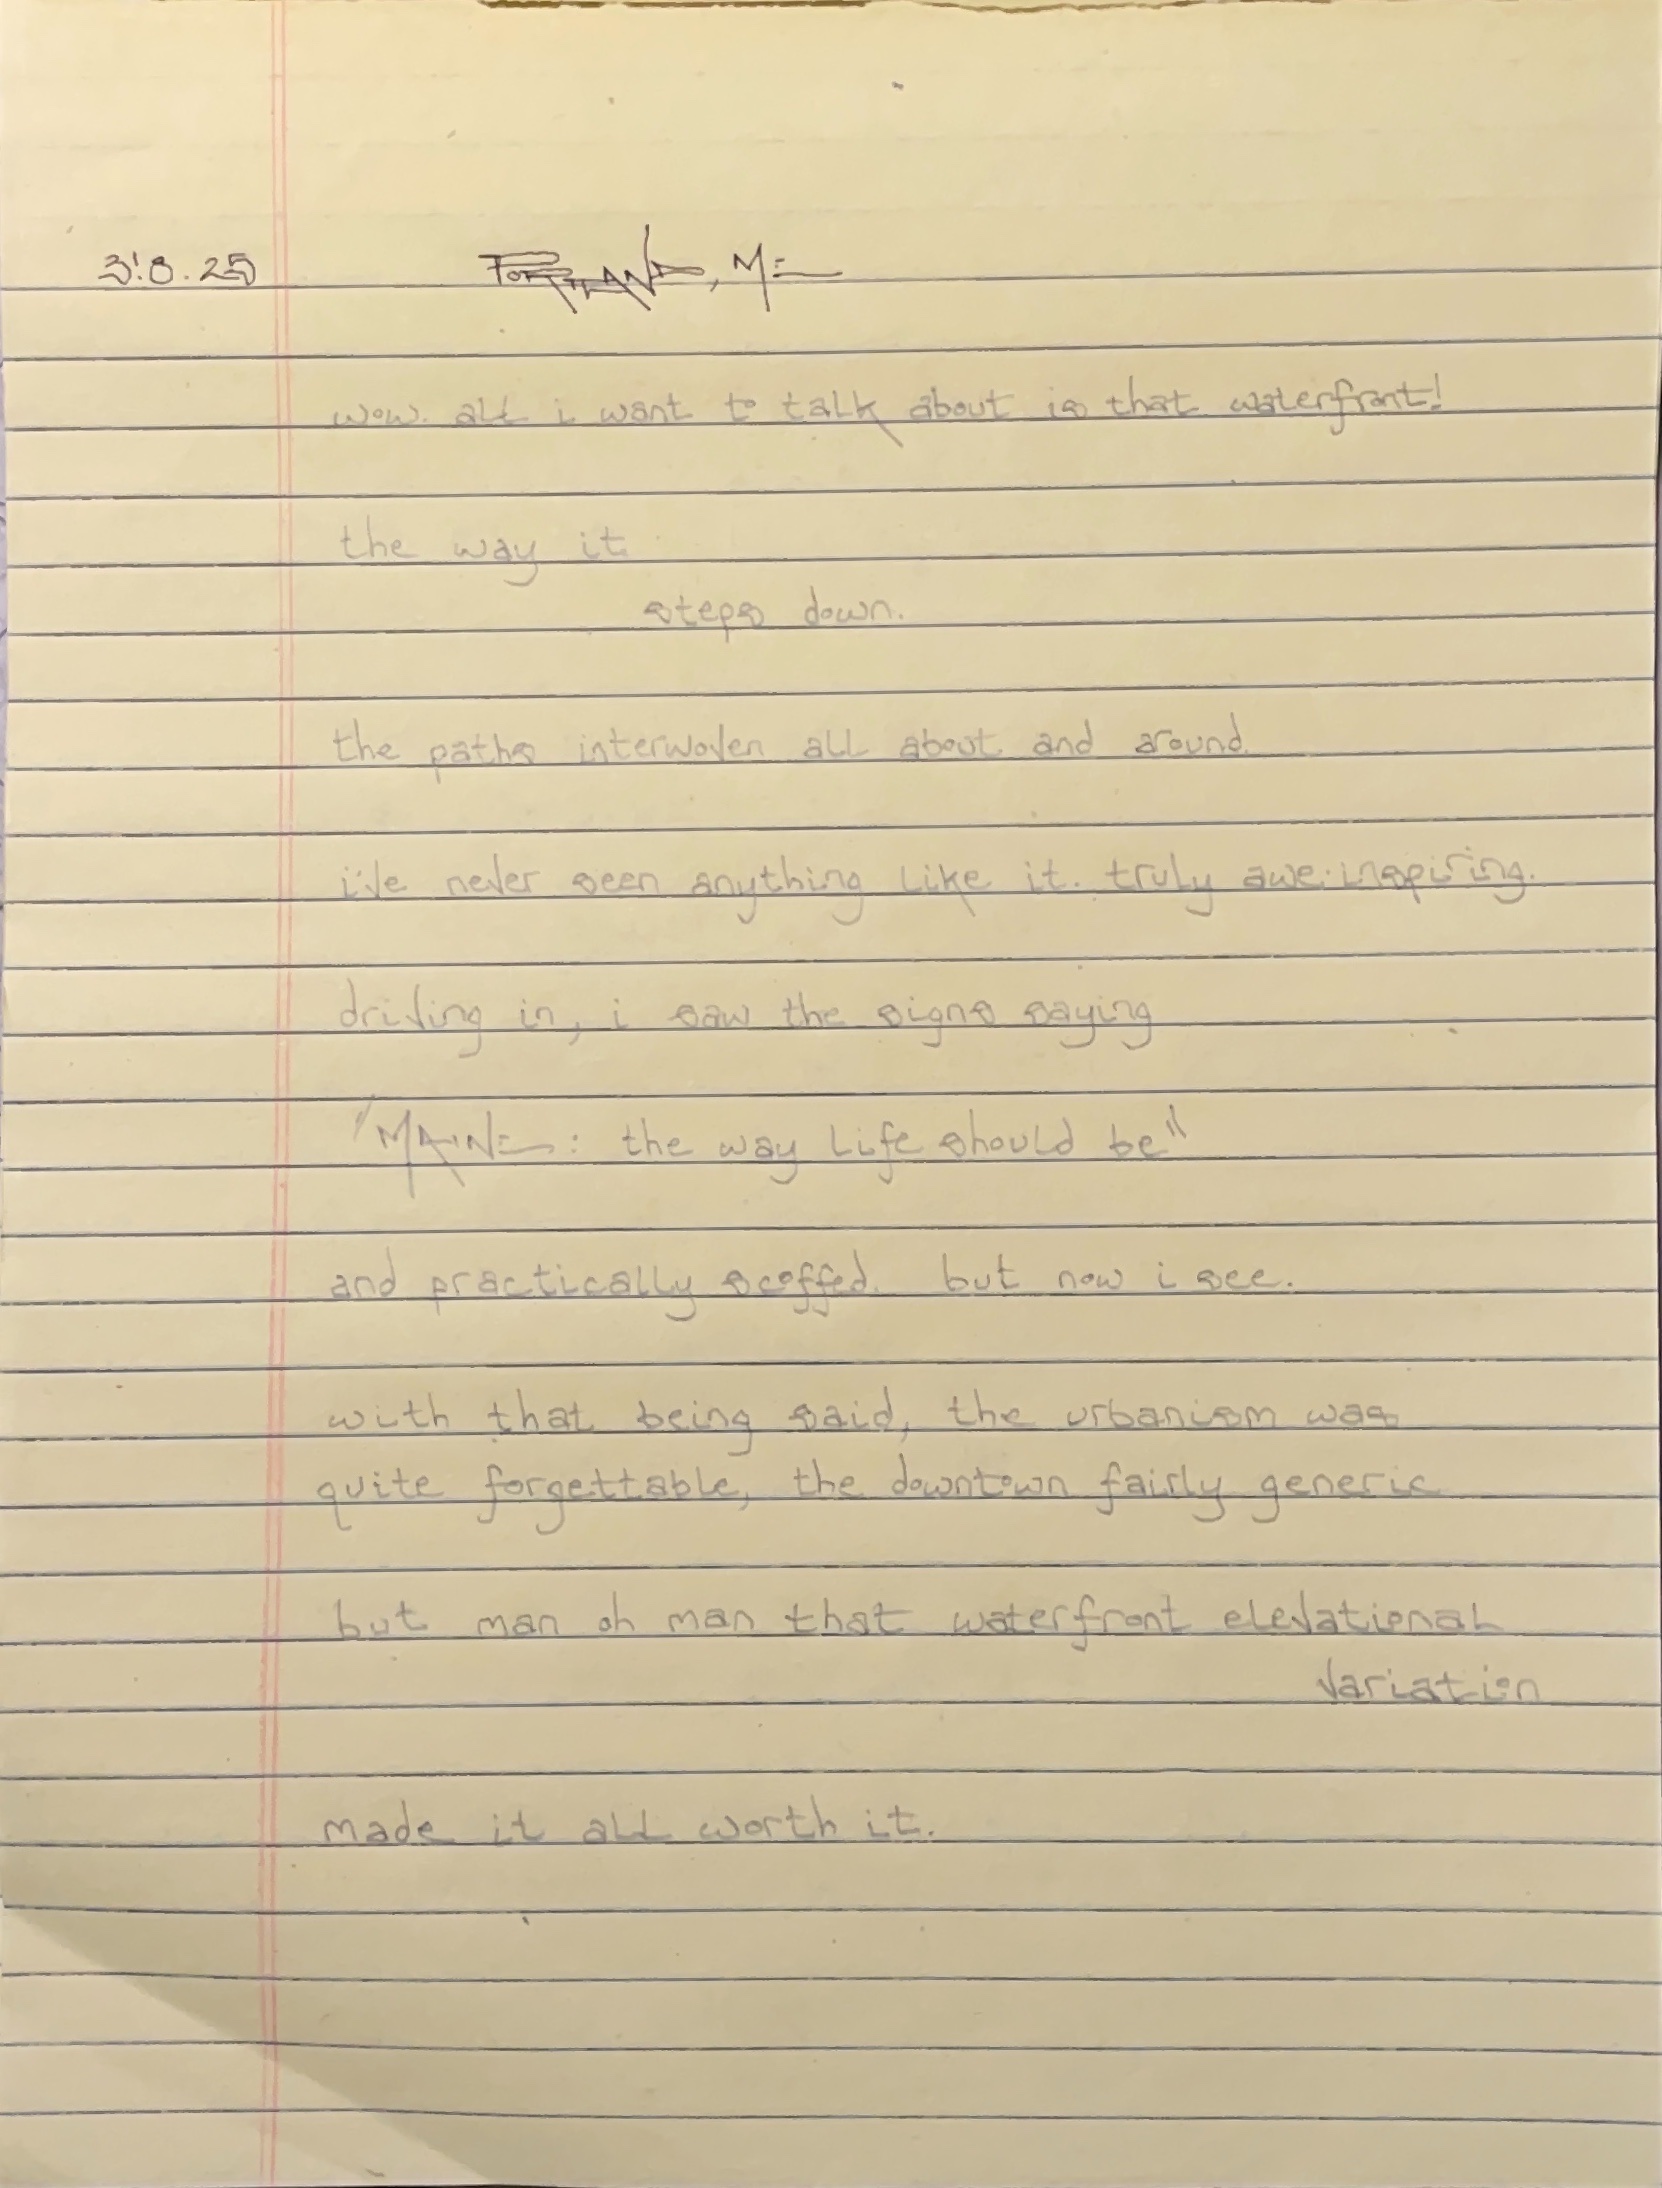 3.8.25 PORTLAND, ME
wow. all i want to talk about is that waterfront!
the way it
steps down.
the paths interwoven all about and around
i've never seen anything like it. truly awe-inspiring.
driving in, i saw the signs saying
"MAINE: the way life should be"
and practically scoffed. but now i see.
with that being said, the urbanism was
quite forgettable, the downtown fairly generic
but man oh man that waterfront elevational
variation
made it all worth it.